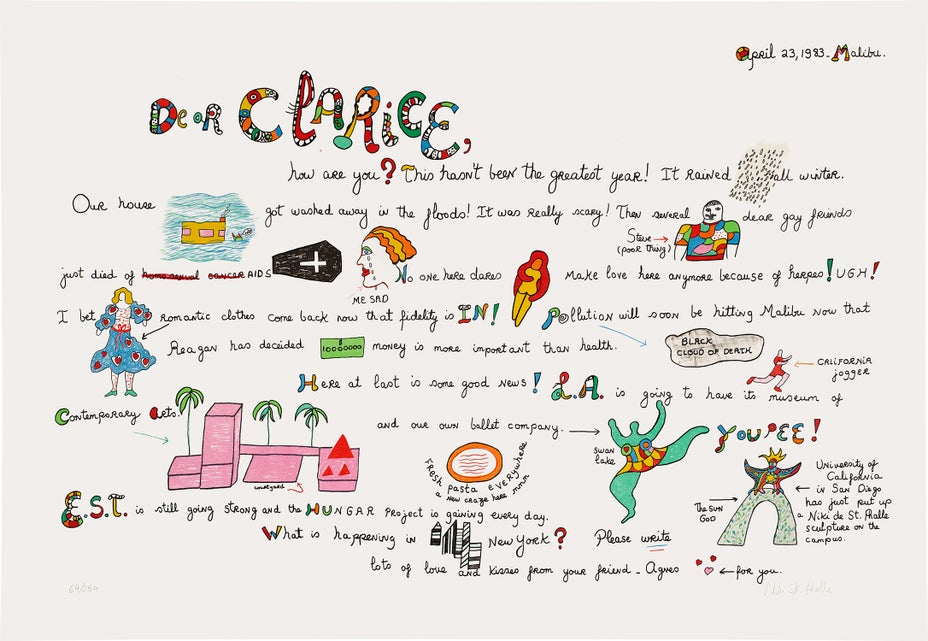 April 23, 1983 - Malibu.
Dear CLARICE,
how are you? This hasn't been the greatest year! It rained all winter.
Our house got washed away in the floods! It was really scary! Then several dear gay friends
Steve →
(poor thing)
just died of homosexual cancer AIDS No one here dares make love here anymore because of herpes! UGH!
ME SAD
I bet romantic clothes come back now that fidelity is IN! Pollution will soon be hitting Malibu now that
Reagan has decided $1000000 money is more important than health.
BLACK
CLOUD OF DEATH
← CALIFORNIA
jogger
Here at last is some good news! L.A. is going to have its museum of
Contemporary Arts.
and our own ballet company. →
swan
lake
YOUPEE!
courtyard
FRESH pasta EVERYwhere
a new craze here mmm
The SUN
GOD
University of
California
← in San Diego
has just put up
a Niki de St. Phalle
sculpture on the
campus.
E.S.T. is still going strong and the HUNGAR Project is gaining every day.
What is happening in New York? Please write
lots of love and kisses from your friend - Agnes ← for you.
Niki St. Phalle